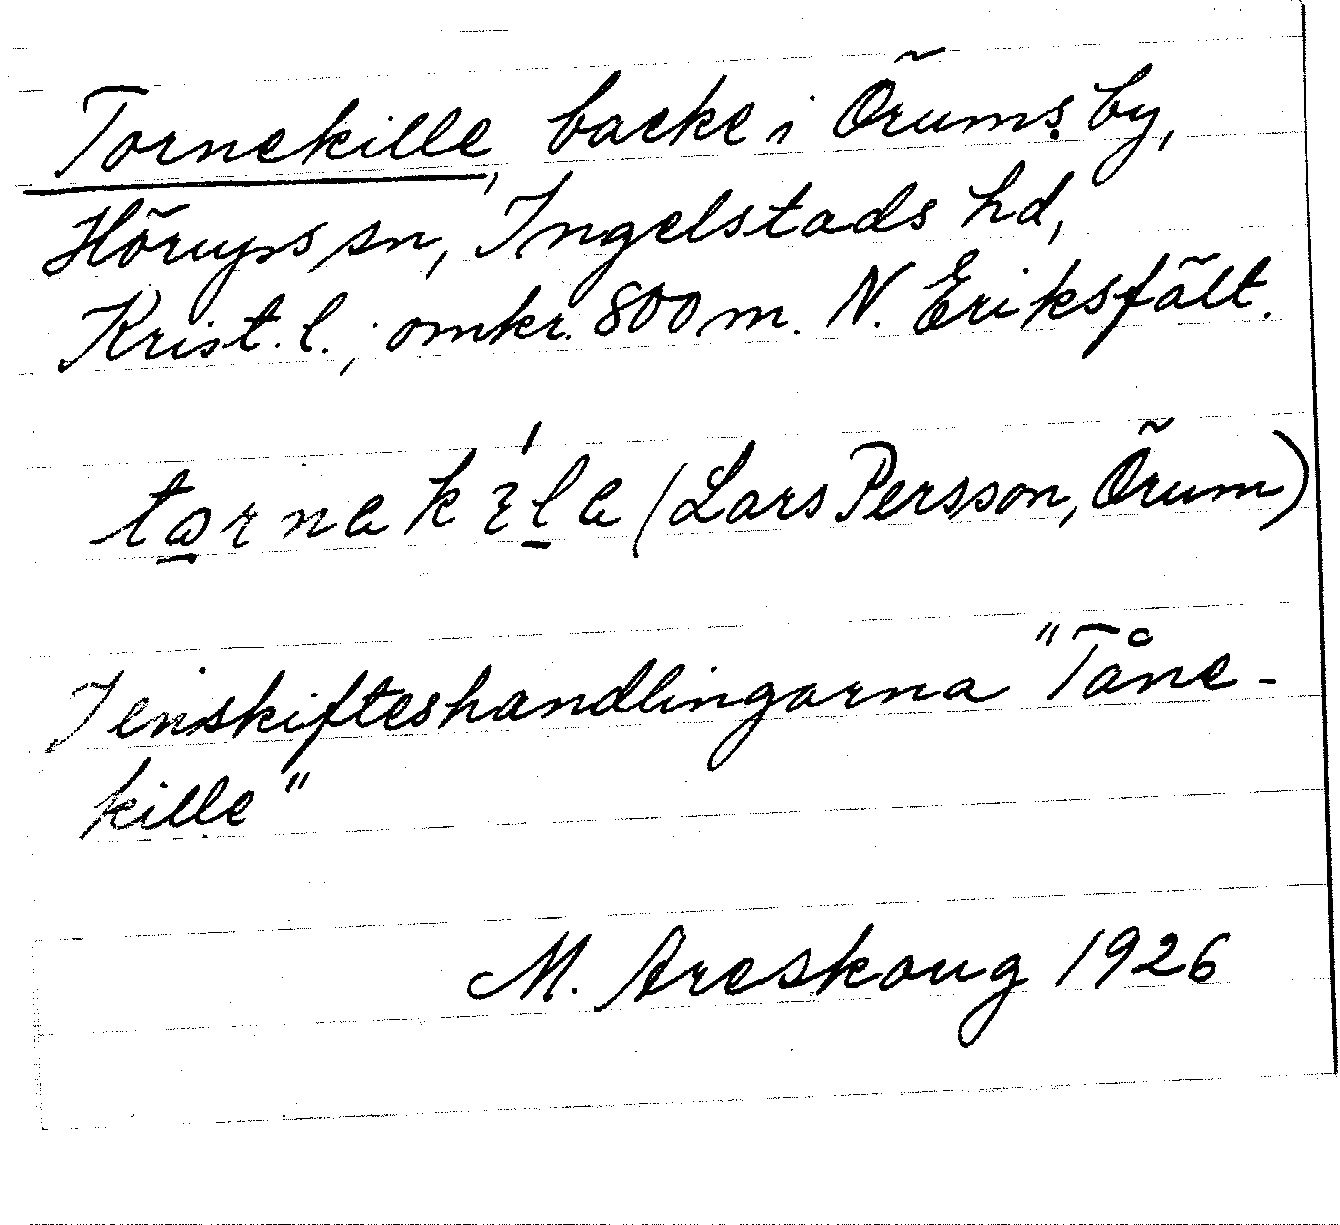 Tornekille, backe i Örums by,
Hörups sn, Ingelstads hd,
Krist. l.; omkr. 800 m. N. Eriksfält.
(Lars Persson, Örum)
I enskifteshandlingarna "Tåne-
kille"
M. Areskoug 1926